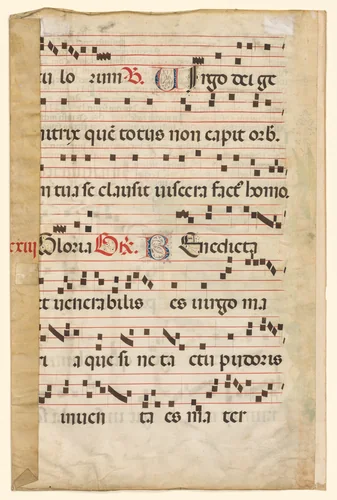 cu lo rum ℟. Uirgo dei ge
nitrix quē totus non capit orb.
in tua se clausit uiscera factꝰ homo.
xxiij Gloria Gr̄. Benedicta
et uenerabilis es uirgo ma
ri a que si ne ta ctu pudoris
inuen ta es ma ter